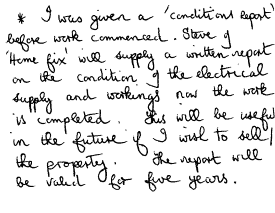 * I was given a 'conditions report'
before work commenced. Steve of
'Home fix' will supply a written report
on the condition of the electrical
supply and workings now the work
is completed. This will be useful
in the future if I wish to sell/
the property. The report will
be valid for five years.